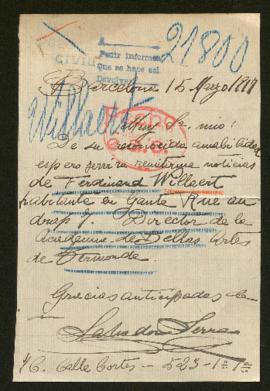 A
Pedir informes
Que se hace así
Devolver
21800
Barcelona 15 Marzo 1917
Willaert
Muy Sr. mio:
De su reconocida amabilidad
espero servira remitirme noticias
de Ferdinand Willaert
habitante en Gante Rue au
drap 7. Director de la
Academia de Bellas Artes
de Termonde
Gracias anticipadas
Salvador
S/C. Calle Cortes - 523 - 1º 1ª